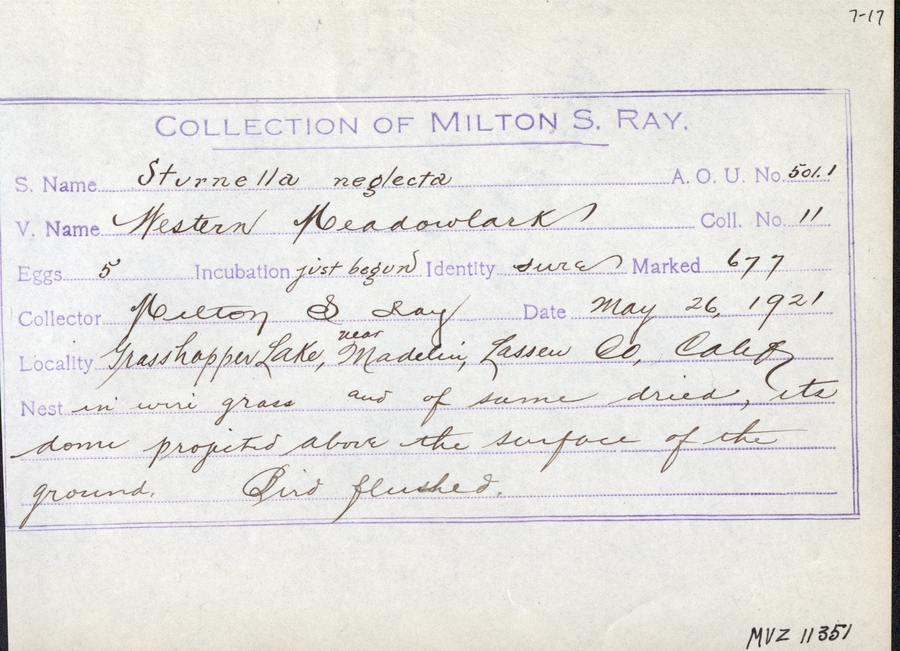 7-17
COLLECTION OF MILTON S. RAY.
S. Name Sturnella neglecta A. O. U. No. 501.1
V. Name Western Meadowlark Coll. No. 11
Eggs 5 Incubation just begun Identity sure Marked 677
Collector Milton S Ray Date May 26, 1921
Locality Grasshopper Lake, near Madelin, Lassen Co, Calif
Nest in wire grass and of same dried, its
dome projected above the surface of the
ground. Bird flushed.
MVZ 11351